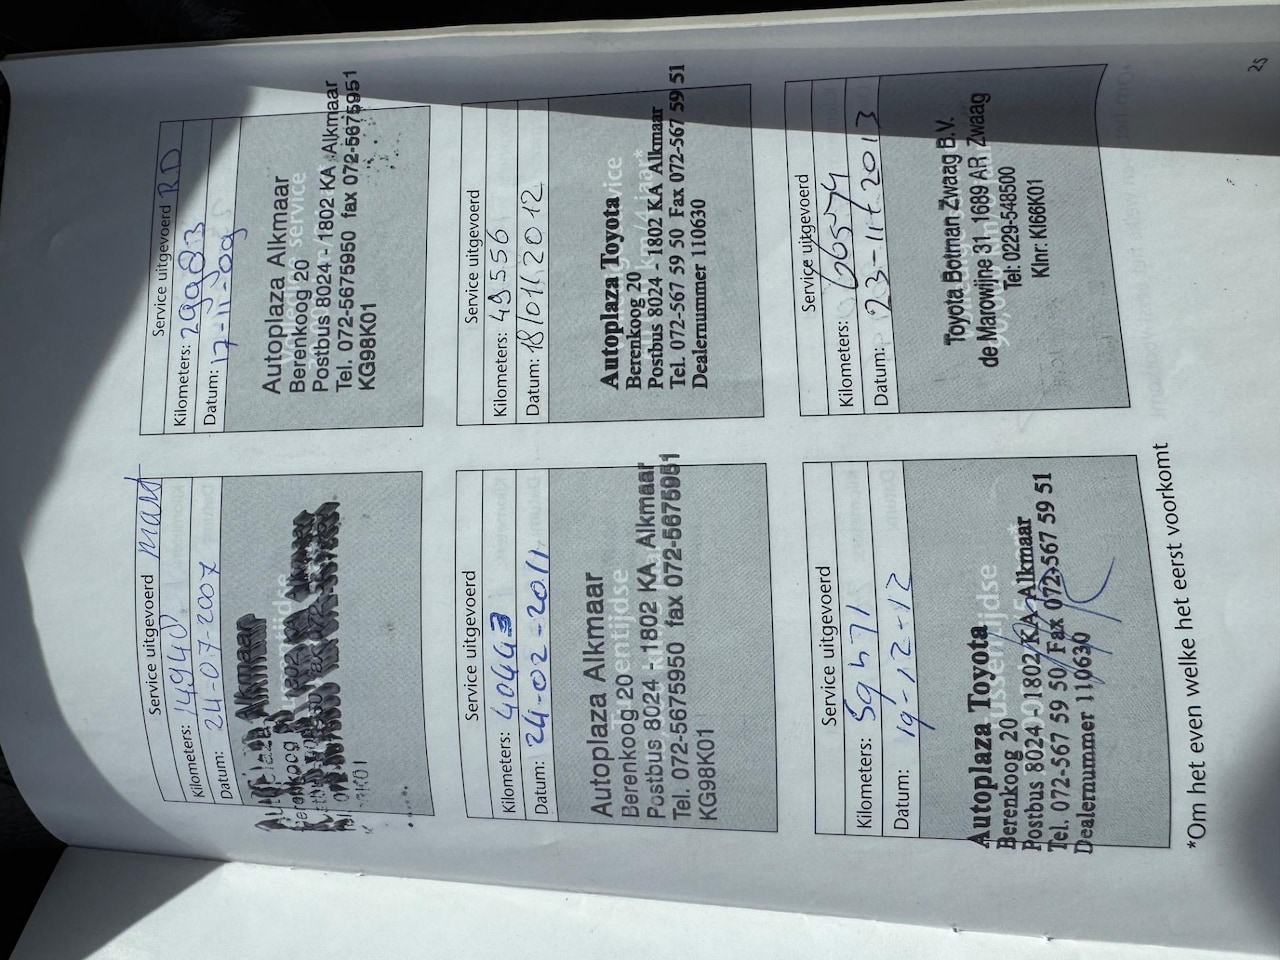 Service uitgevoerd Mart
Kilometers: 14940
Datum: 24-07-2007
Autoplaza Alkmaar
Berenkoog 20
Service uitgevoerd RD
Kilometers: 29983
Datum: 17-11-09
Autoplaza Alkmaar
Berenkoog 20
Postbus 8024 - 1802 KA Alkmaar
Tel. 072-5675950 fax 072-5675951
KG98K01
Service uitgevoerd
Kilometers: 40443
Datum: 24-02-2011
Autoplaza Alkmaar
Berenkoog 20
Postbus 8024 - 1802 KA Alkmaar
Tel. 072-5675950 fax 072-5675951
KG98K01
Service uitgevoerd
Kilometers: 49556
Datum: 18/01/2012
Autoplaza Toyota
Berenkoog 20
Postbus 8024 - 1802 KA Alkmaar
Tel. 072-567 59 50 Fax 072-567 59 51
Dealernummer 110630
Service uitgevoerd
Kilometers: 59571
Datum: 19-12-12
Autoplaza Toyota
Berenkoog 20
Postbus 8024 - 1802 KA Alkmaar
Tel. 072-567 59 50 Fax 072-567 59 51
Dealernummer 110630
Service uitgevoerd
Kilometers: 66574
Datum: 23-11-2013
Toyota Botman Zwaag B.V.
de Marowijne 31 1689 AR Zwaag
Tel: 0229-548500
Klnr: KI66K01
*Om het even welke het eerst voorkomt
25